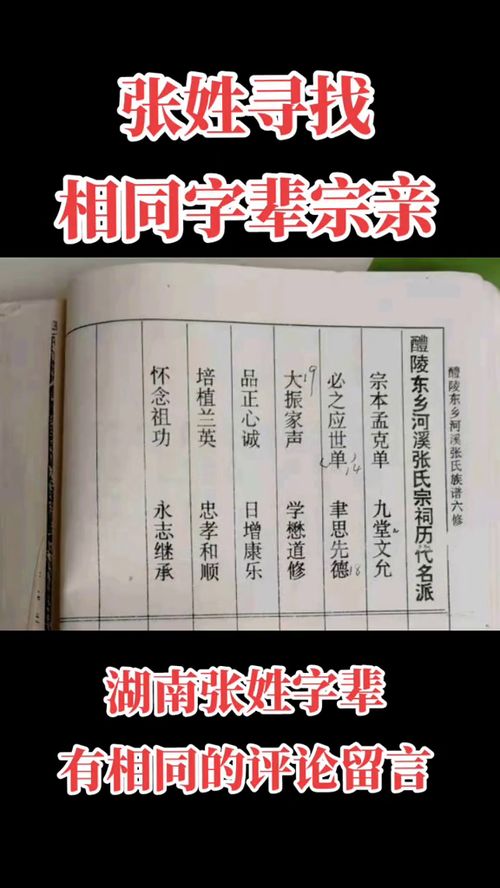 张姓寻找
相同字辈宗亲
醴陵东乡河溪张氏族谱六修
醴陵东乡河溪张氏宗祠历代名派
宗本孟克单 九堂文允
必之应世单 14 聿思先德 18
19 大振家声 学懋道修
品正心诚 日增康乐
培植兰英 忠孝和顺
怀念祖功 永志继承
湖南张姓字辈
有相同的评论留言